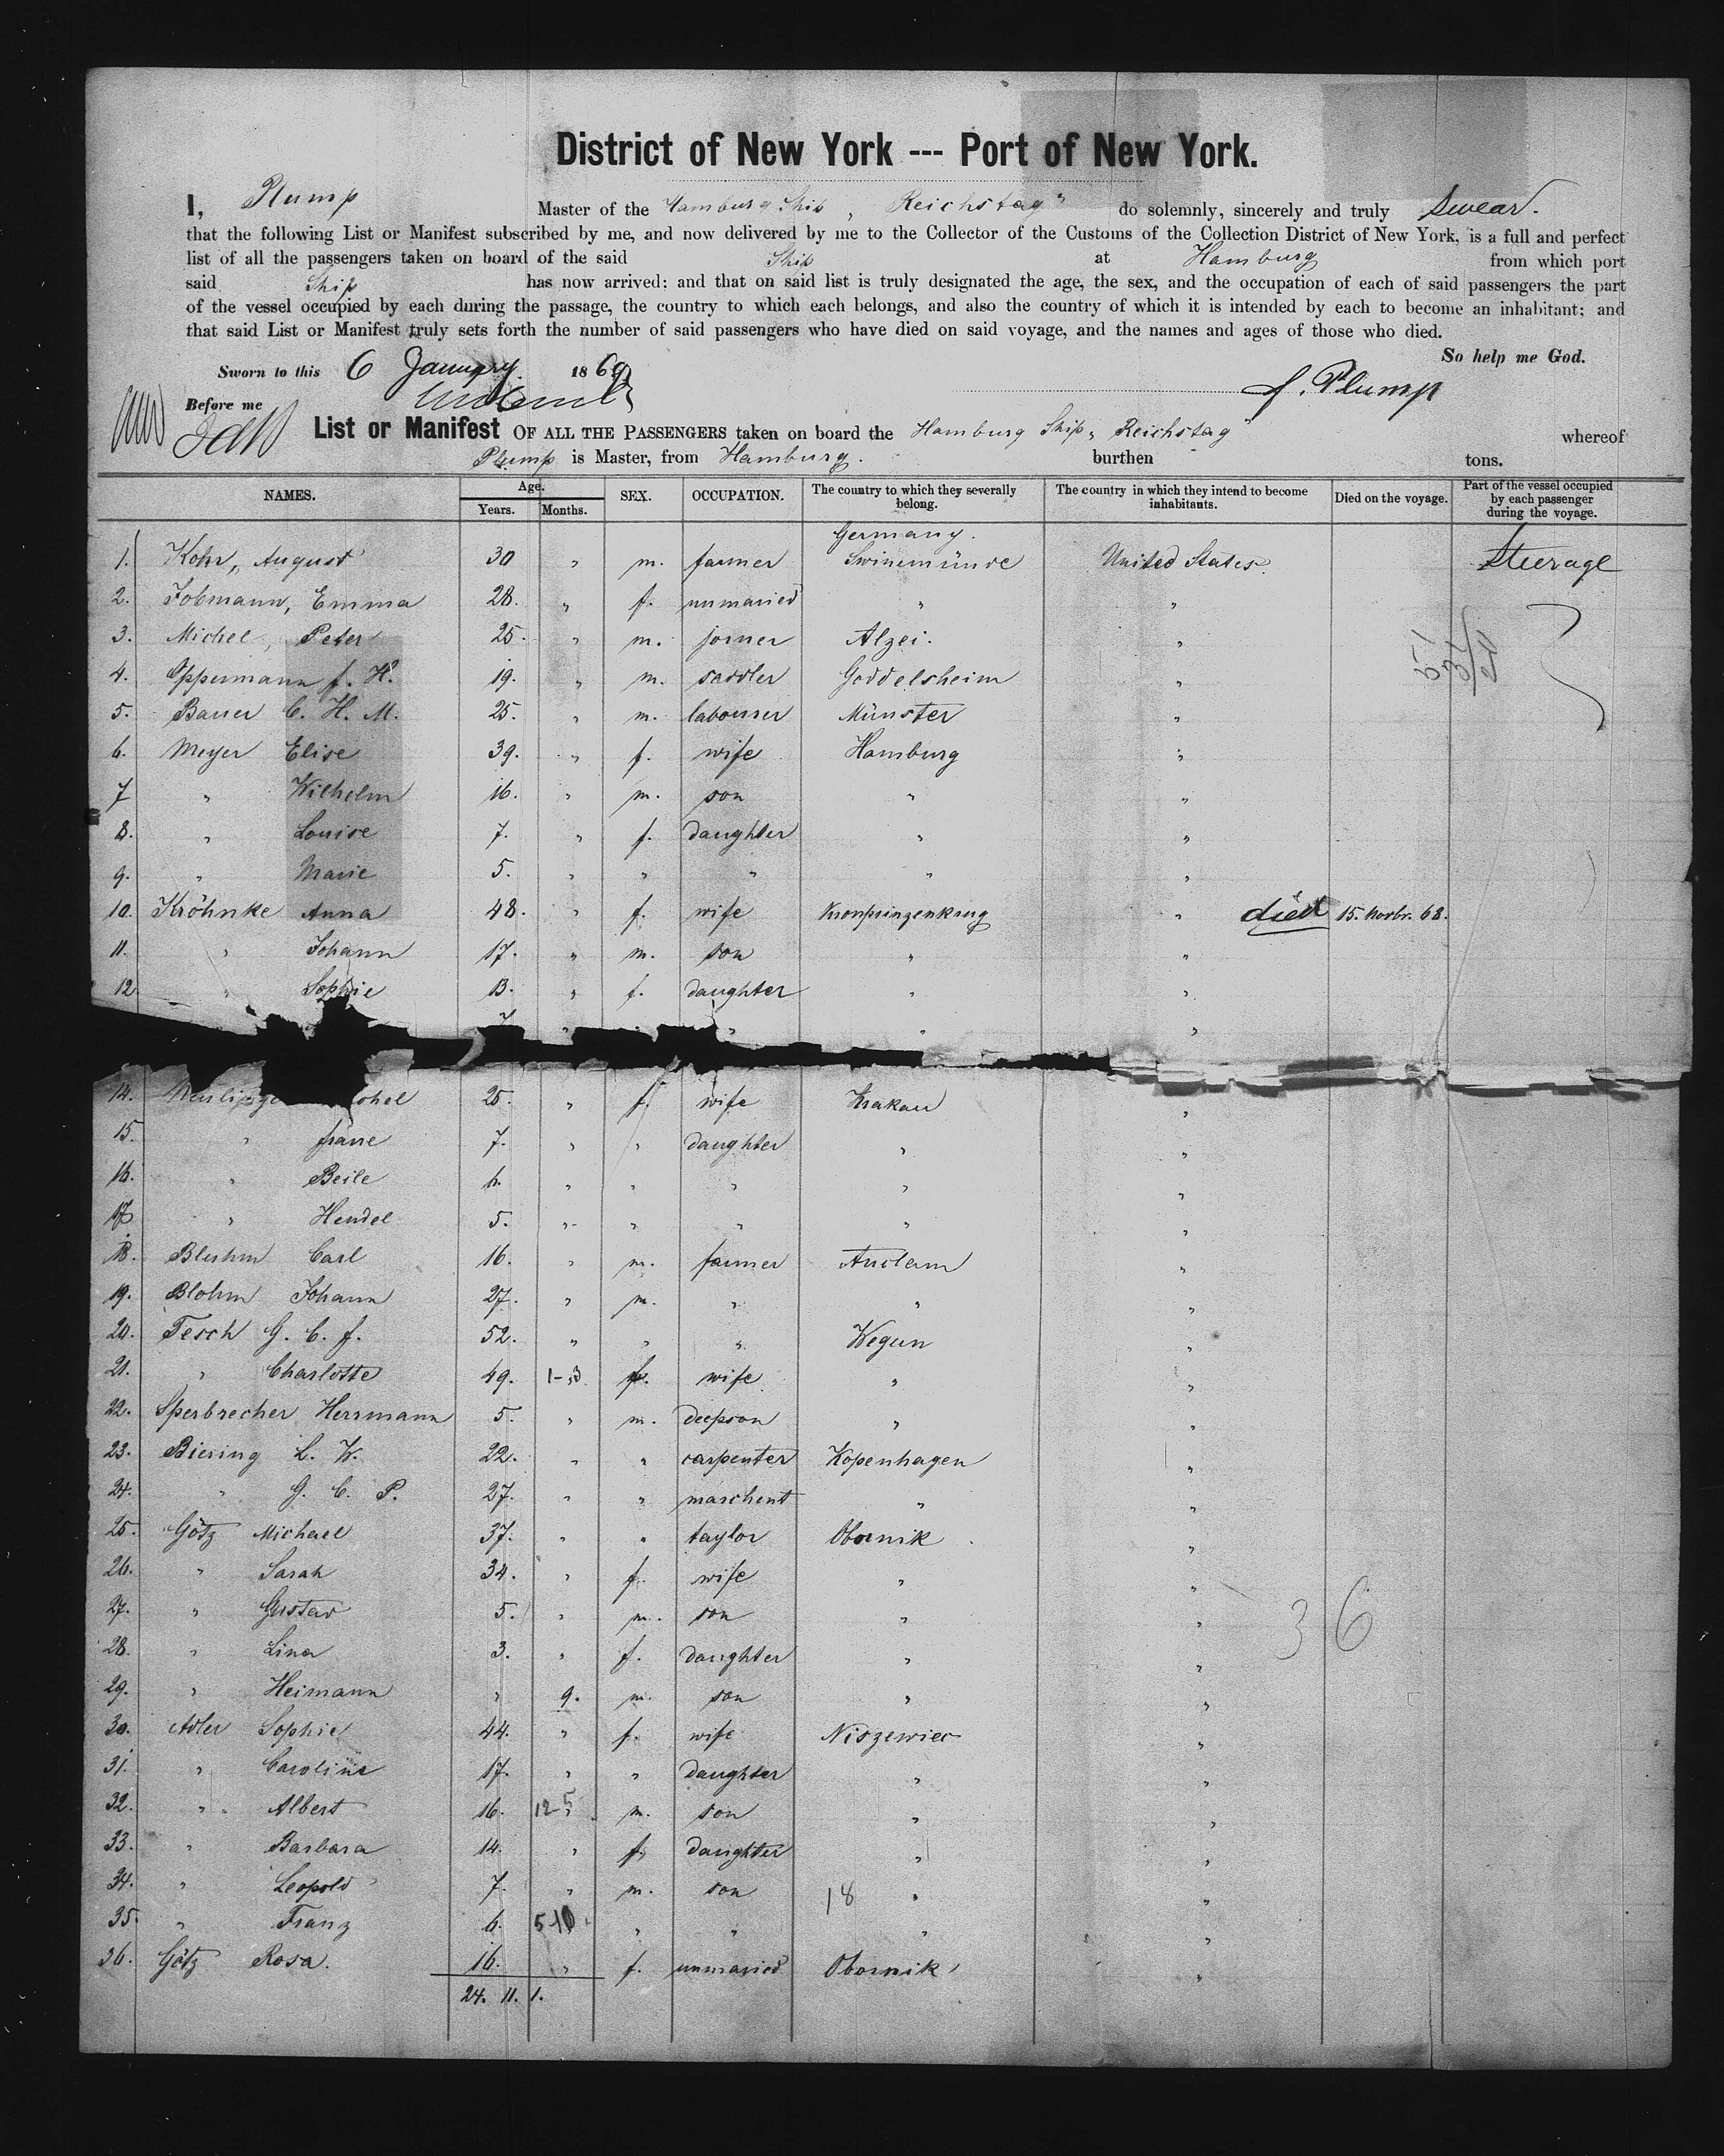 District of New York --- Port of New York.
I, Plump Master of the Hamburg Ship „Reichstag" do solemnly, sincerely and truly swear.
that the following List or Manifest subscribed by me, and now delivered by me to the Collector of the Customs of the Collection District of New York, is a full and perfect
list of all the passengers taken on board of the said Ship at Hamburg from which port
said Ship has now arrived: and that on said list is truly designated the age, the sex, and the occupation of each of said passengers the part
of the vessel occupied by each during the passage, the country to which each belongs, and also the country of which it is intended by each to become an inhabitant; and
that said List or Manifest truly sets forth the number of said passengers who have died on said voyage, and the names and ages of those who died.
So help me God.
Sworn to this 6 January 1869
J. Plump
Before me
List or Manifest OF ALL THE PASSENGERS taken on board the Hamburg Ship „Reichstag" whereof
Plump is Master, from Hamburg. burthen tons.
NAMES. Age. Years. Months. SEX. OCCUPATION. The country to which they severally belong. The country in which they intend to become inhabitants. Died on the voyage. Part of the vessel occupied by each passenger during the voyage.
Germany.
1. Kohr, August 30 " m. farmer Swinemünde United States. Steerage
2. Jobmann, Emma 28. " f. unmaried " "
3. Michel, Peter 25. " m. joiner Alzei. "
4. Oppermann J. H. 19. " m. saddler Goddelsheim "
5. Bauer C. H. M. 25. " m. labourer Münster "
6. Meyer Elise 39. " f. wife Hamburg "
7 " Wilhelm 16. " m. son " "
8. " Louise 7. " f. daughter " "
9. " Marie 5. " " " " "
10. Kröhnke Anna 48. " f. wife Kronprinzenkrug " died 15. Novbr. 68.
11. " Johann 17. " m. son " "
12. " Sophie 13. " f. daughter " "
7 " " " "
14. 25. " f. wife Krakau "
15. " 7. " " daughter " "
16. " Beile 6. " " " " "
17 " Hendel 5. " " " " "
18. Bluhm Carl 16. " m. farmer Anclam "
19. Blohm Johann 27. " m. " " "
20. Tesch G. C. F. 52. " " " Wegun "
21. " Charlotte 49. f. wife " "
22. Sperbrecher Herrmann 5. " m. " "
23. Biering L. W. 22. " " carpenter Kopenhagen "
24. " G. C. P. 27. " " marchent " "
25. Götz Michael 37. " " taylor Obornik "
26. " Sarah 34. " f. wife " "
27. " Gustav 5. " m. son " "
28. " Lina 3. " f. daughter " "
29. " Heimann " 9. m. son " "
36
30. Adler Sophie 44. " f. wife Niszewiec "
31. " Caroline 17. " " daughter " "
32. " Albert 16. 12 5 m. son " "
33. " Barbara 14. " f. daughter " "
34. " Leopold 7. " m. son 18 " "
35. " Franz 6. " " " "
36. Götz Rosa. 16. " f. unmaried Obornik "
24. 11. 1.